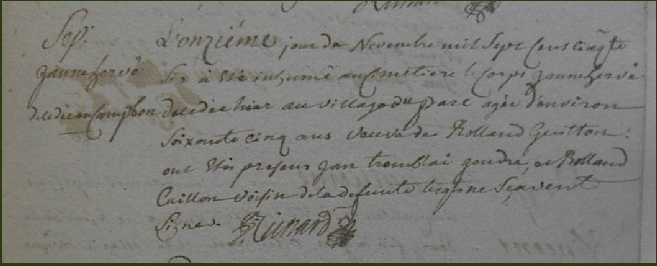 Sep.
janne hervé
L'onziéme jour de Novembre mil Sept Cens Cinqte
Six a ete inhumé au Cimetiere le Corps janne hervé
decedée hier au village du parc agée d'environ
Soixante Cinq ans veuve de Rolland Guitton
ont etés presens jan tremblai gendre, et Rolland
Caillon voisin de la defunte lesqne Sçavent
Signer.